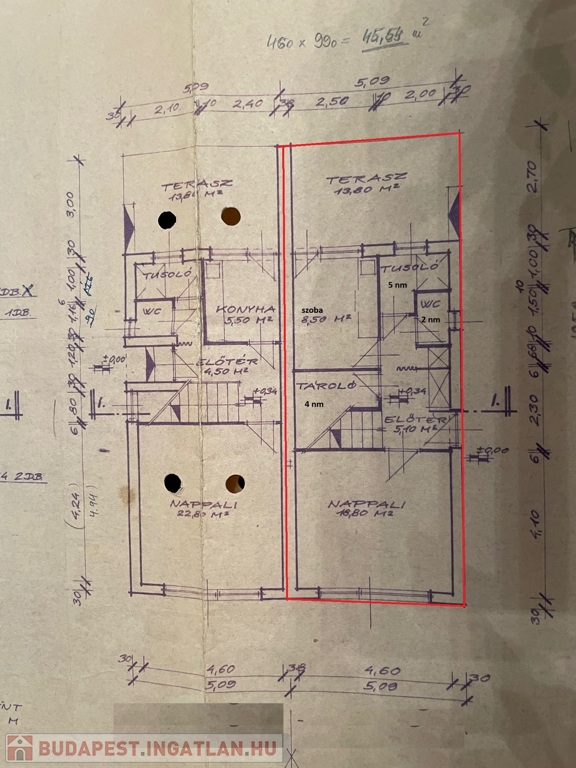 460 x 990 = 45,54 m²
5,09 5,09
30 2,10 10 2,40 38 2,50 10 2,00 30
TERASZ
13,80 M²
TERASZ
13,80 M²
3,00
2,70
30
30
TUSOLÓ
TUSOLÓ
5 nm
1,00
1,00
DB X
1 DB
WC
KONYHA
5,50 M²
szoba
8,50 M²
WC
2 nm
10
1,50
ELŐTÉR
4,50 M²
±0,00
+0,34
TÁROLÓ
4 nm
+0,34
ELŐTÉR
5,10 M²
±0,00
I. I.
I.
6 80 30
2,30
6
6
4 2DB
(4,24)
4,94
NAPPALI
22,80 M²
NAPPALI
18,80 M²
4,10
30
30
30 4,60 38 4,60 30
5,09 5,09
M
BUDAPEST.INGATLAN.HU